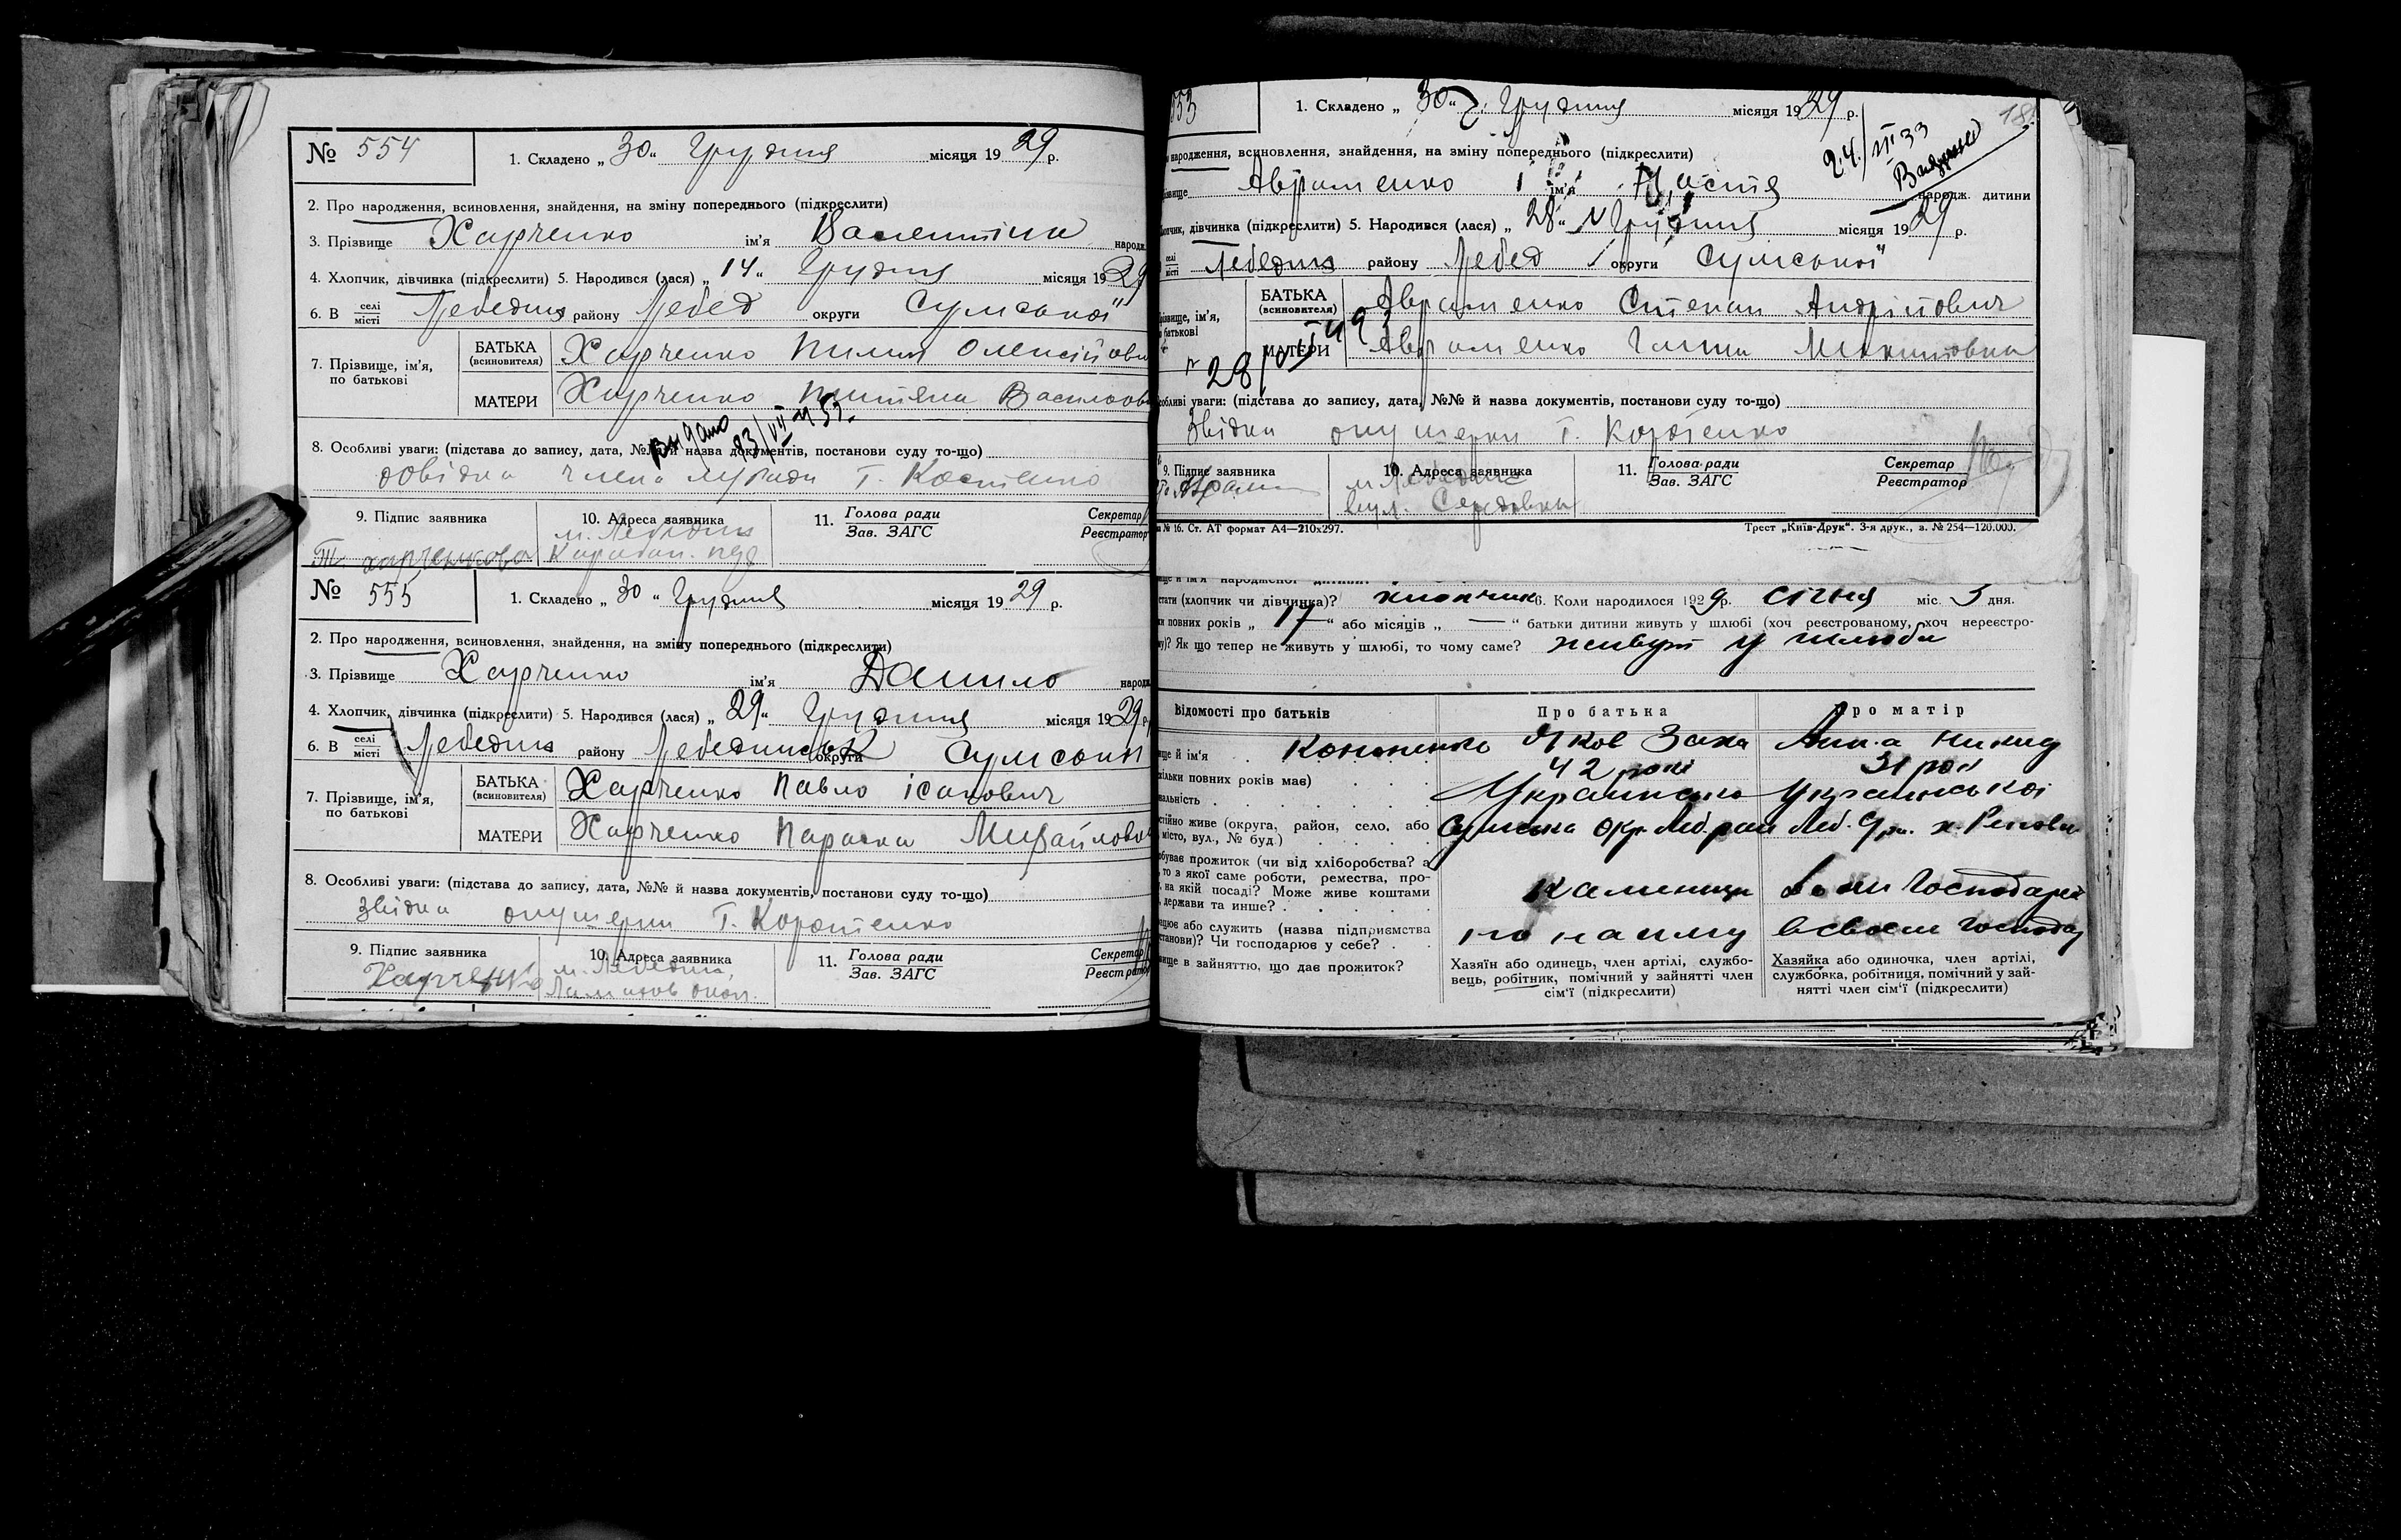 № 554
1. Складено „ 30 “ Грудня місяця 19 29 р.
2. Про народження, всиновлення, знайдення, на зміну попереднього (підкреслити)
3. Прізвище Харченко ім'я Валентина народж
4. Хлопчик, дівчинка (підкреслити) 5. Народився (лася) „ 14 “ Грудня місяця 19 29
6. В селі місті Лебедин району Лебед округи Сумської
7. Прізвище, ім'я, по батькові
БАТЬКА (всиновителя) Харченко Пилип Олексійови
МАТЕРИ Харченко Тетяна Василовн
Видано
8. Особливі уваги: (підстава до запису, дата, №№ й назва документів, постанови суду то-що)
довідка члена м/ради т. Костенко
9. Підпис заявника
Т. Харченкова
10. Адреса заявника
м. Лебедин
11. Голова ради
Зав. ЗАГС
Секретар
Реєстратор
№ 555
1. Складено „ 30 “ Грудня місяця 19 29 р.
2. Про народження, всиновлення, знайдення, на зміну попереднього (підкреслити)
3. Прізвище Харченко ім'я Данило народж
4. Хлопчик, дівчинка (підкреслити) 5. Народився (лася) „ 29 “ Грудня місяця 19 29 р
6. В селі місті Лебедин району Лебединськ округи Сумськи
7. Прізвище, ім'я, по батькові
БАТЬКА (всиновителя) Харченко Павло Ісакович
МАТЕРИ Харченко Параска Михайловн
8. Особливі уваги: (підстава до запису, дата, №№ й назва документів, постанови суду то-що)
Звідка акушерки т. Коротенко
9. Підпис заявника
Харченко
10. Адреса заявника
м. Лебедин,
11. Голова ради
Зав. ЗАГС
Секретар
Реєстратор
553
1. Складено „ 30 “ Грудня місяця 19 29 р.
18
24/III 33
Видано
народження, всиновлення, знайдення, на зміну попереднього (підкреслити)
Авраменко ім'я Настя народж. дитини
дівчинка (підкреслити) 5. Народився (лася) „ 28 “ Грудня місяця 19 29 р.
селі місті Лебедин району Лебед округи Сумської
Прізвище, ім'я, по батькові
БАТЬКА (всиновителя) Авраменко Степан Андрійович
МАТЕРИ Авраменко Ганна Микитовна
уваги: (підстава до запису, дата, №№ й назва документів, постанови суду то-що)
Звідка акушерки т. Коротенко
9. Підпис заявника
10. Адреса заявника
м. Лебедин
вул. Середовка
11. Голова ради
Зав. ЗАГС
Секретар
Реєстратор
№ 16. Ст. АТ формат А4—210х297.
Трест „Київ-Друк“. 3-я друк., з. № 254—120.000.
й ім'я народженої дитини:
стати (хлопчик чи дівчинка)? хлопчик 6. Коли народилося 192 9 р. січня міс. 3 дня.
повних років „ 17 “ або місяців „ — “ батьки дитини живуть у шлюбі (хоч реєстрованому, хоч нереєстро-
му)? Як що тепер не живуть у шлюбі, то чому саме? живут у шлюби
Відомості про батьків
Про батька
Про матір
й ім'я Кононенко Яков Заха Анна Никид
скільки повних років має) 42 роки 31 рок
Украинська Украинської
живе (округа, район, село, або
місто, вул., № буд.)
Сумська окр. Леб. рай Леб.
прожиток (чи від хліборобства? а
то з якої саме роботи, ремества, про-
на якій посаді? Може живе коштами
держави та инше?
Каменщи
або служить (назва підприємства
Чи господарює у себе?
по найму
в своем господ
в зайняттю, що дає прожиток?
Хазяїн або одинець, член артілі, службо-
вець, робітник, помічний у зайнятті член
сім'ї (підкреслити)
Хазяйка або одиночка, член артілі,
службовка, робітниця, помічний у зай-
нятті член сім'ї (підкреслити)